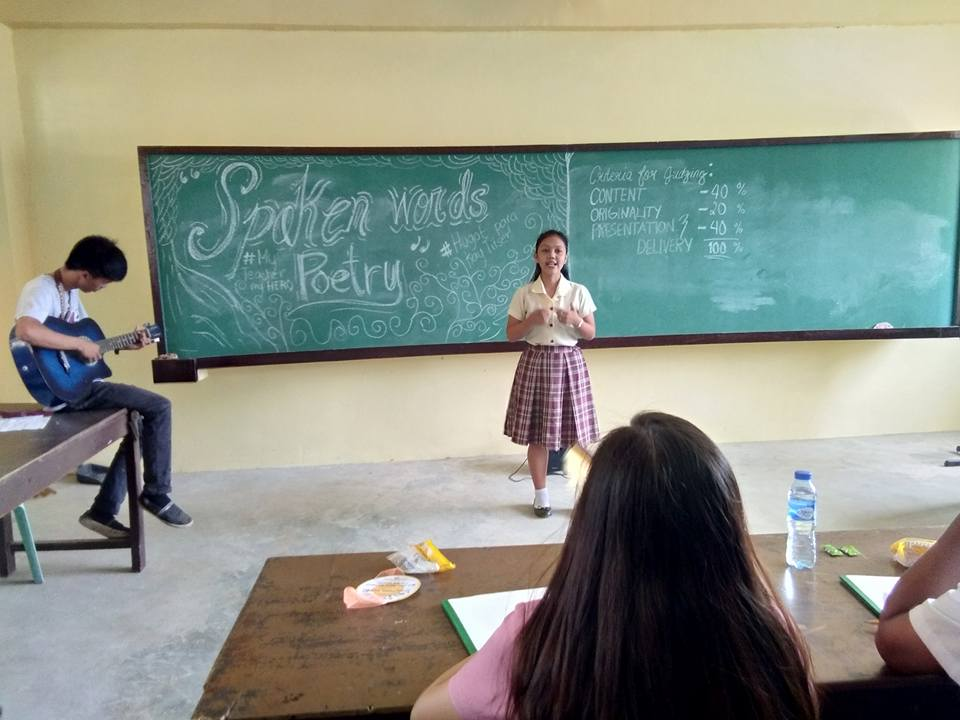 Spoken words
Poetry
#My
Teacher
my HERO
#Hugot para
Kay Titser
Criteria for Judging:
CONTENT - 40 %
ORIGINALITY - 20 %
PRESENTATION } - 40 %
DELIVERY 100 %